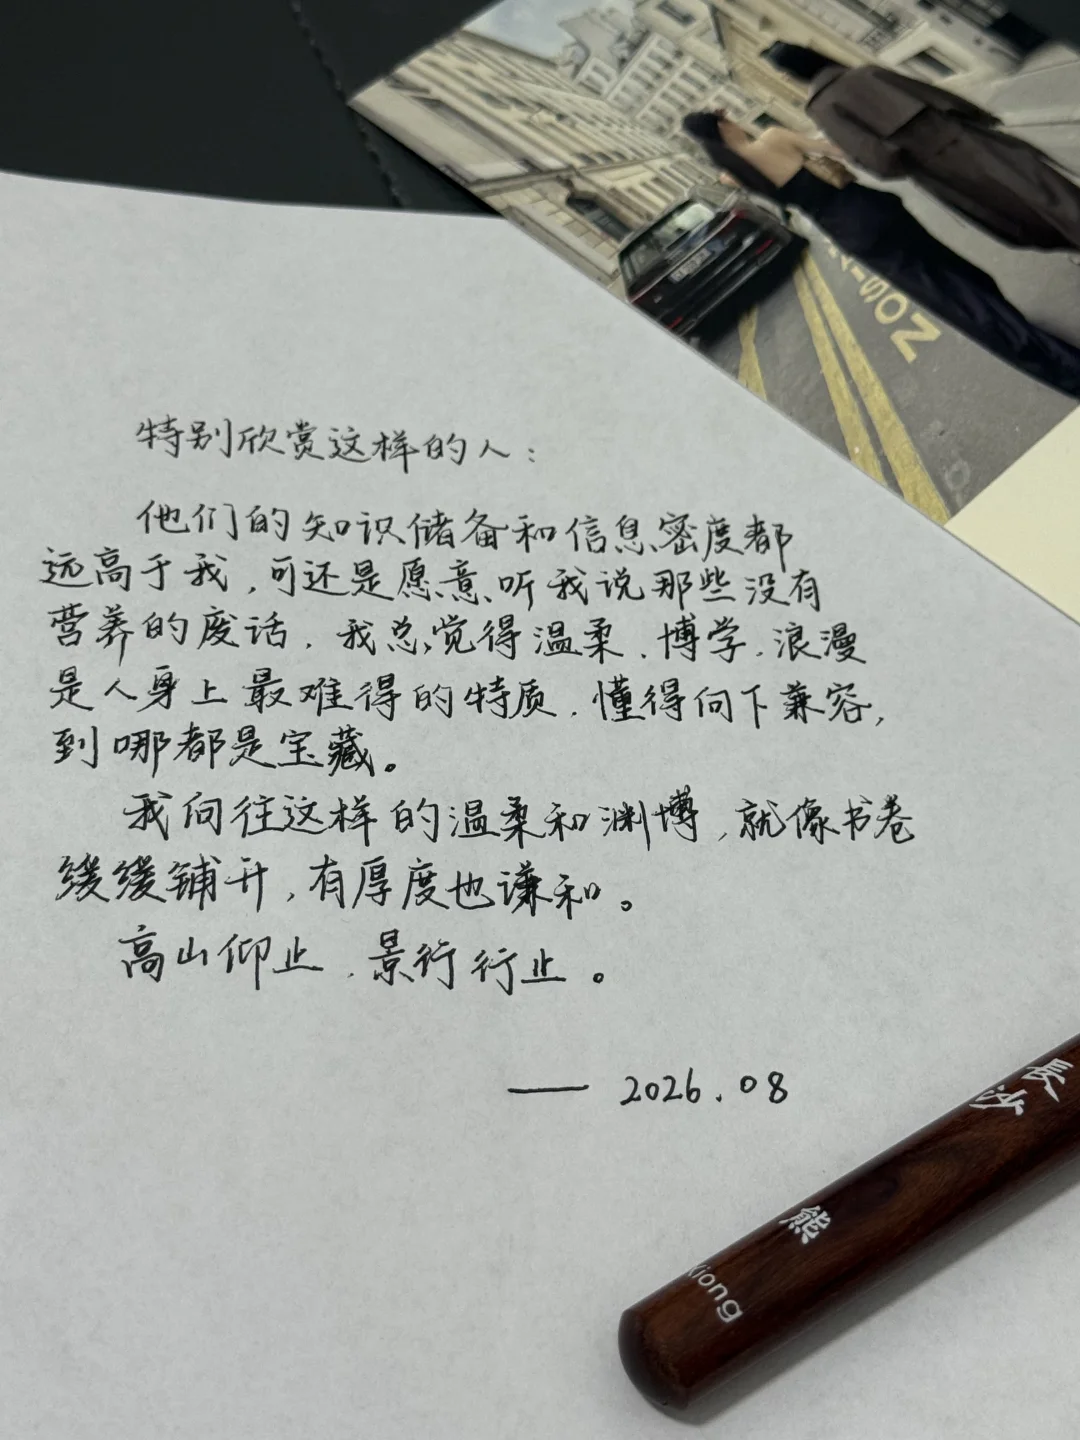 NOSI
特别欣赏这样的人：
他们的知识储备和信息密度都
远高于我，可还是愿意听我说那些没有
营养的废话，我总觉得温柔、博学、浪漫
是人身上最难得的特质，懂得向下兼容，
到哪都是宝藏。
我向往这样的温柔和渊博，就像书卷
缓缓铺开，有厚度也谦和。
高山仰止，景行行止。
—— 2026.08
長沙
熊
Xiong